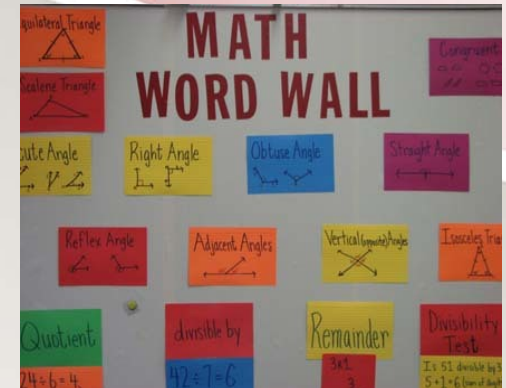 MATH
WORD WALL
quilateral Triangle
Congruent
Scalene Triangle
cute Angle
Right Angle
Obtuse Angle
Straight Angle
Reflex Angle
Adjacent Angles
Vertical (opposite) Angles
Isosceles Tria
Quotient
divisible by
Remainder
Divisibility
Test
24÷6=4
42÷7=6
3R1
3
Is 51 divisible by 3
5+1=6 (sum of digit